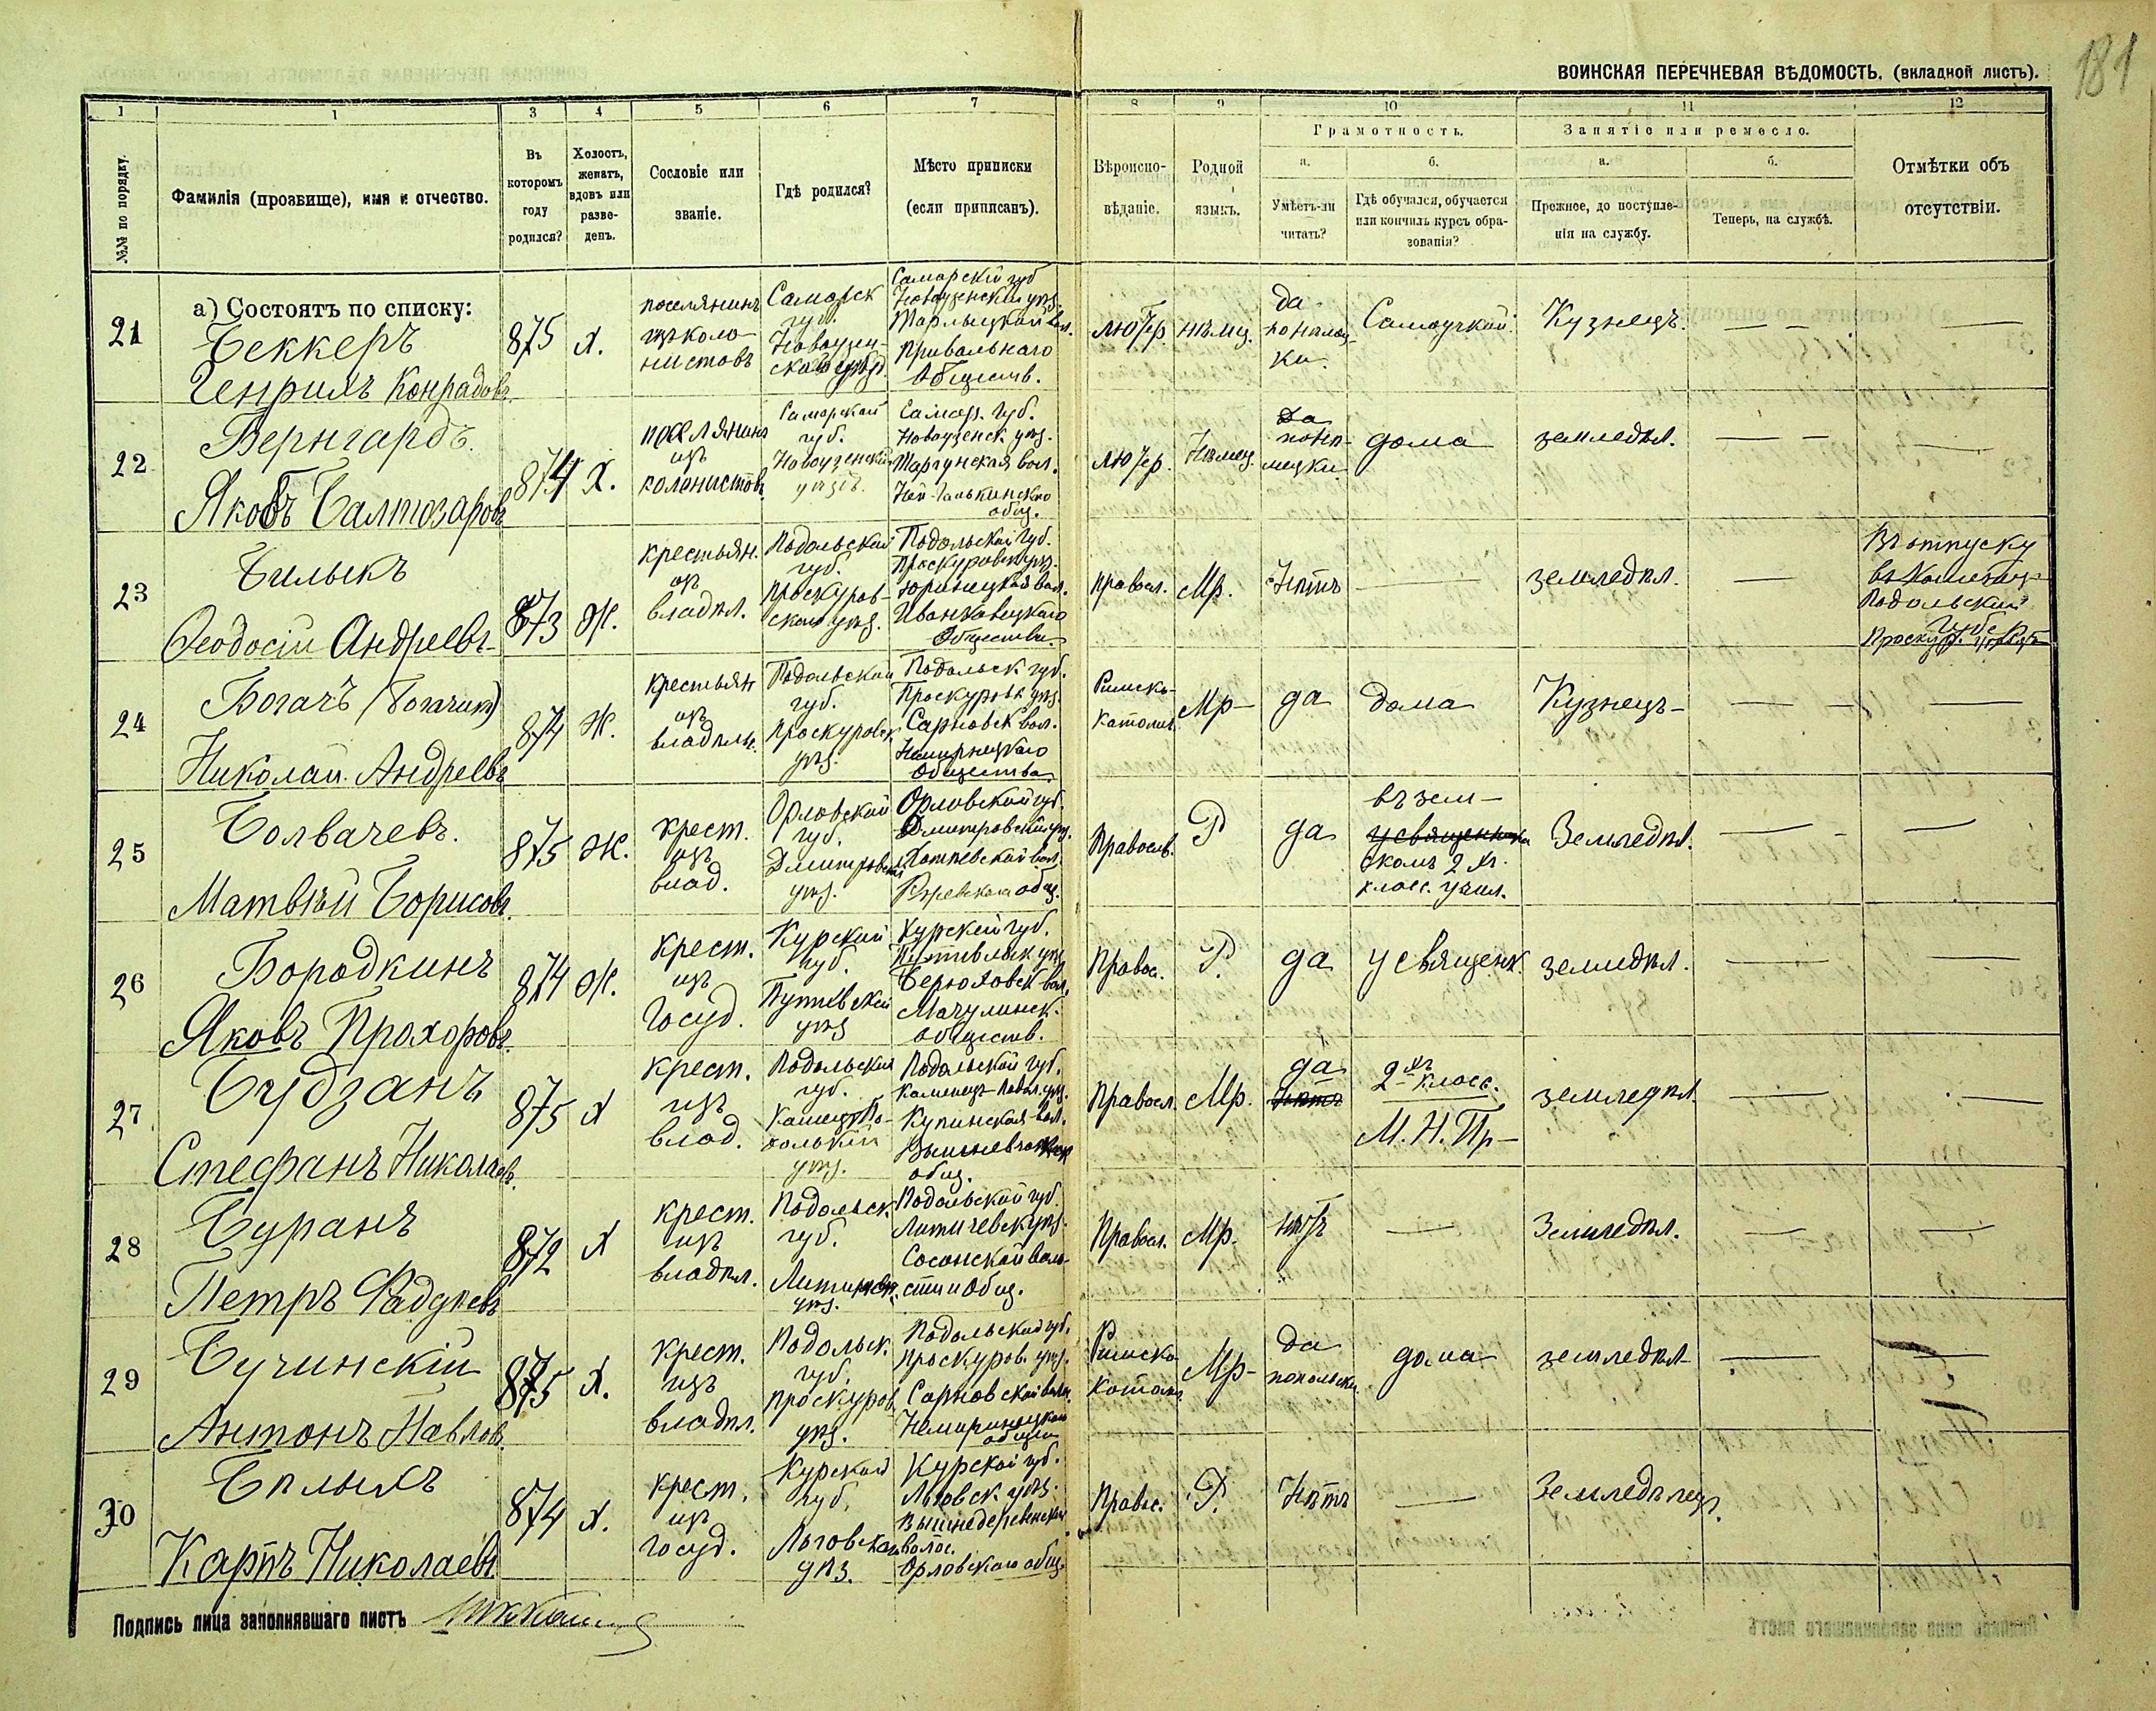 181
ВОИНСКАЯ ПЕРЕЧНЕВАЯ ВѢДОМОСТЬ. (вкладной листъ).
1 1 3 4 5 6 7 8 9 10 11 12
№№ по порядку.
Фамилія (прозвище), имя и отчество.
Въ которомъ году родился?
Холостъ, женатъ, вдовъ или разведенъ.
Сословіе или званіе.
Гдѣ родился?
Мѣсто приписки (если приписанъ).
Вѣроисповѣданіе.
Родной языкъ.
Грамотность.
а.
Умѣетъ-ли читать?
б.
Гдѣ обучался, обучается или кончилъ курсъ образованія?
Занятіе или ремесло.
а.
Прежнее, до поступленія на службу.
б.
Теперь, на службѣ.
Отмѣтки объ отсутствіи.
а) Состоятъ по списку:
21
Беккеръ
Генрихъ Конрадовъ
875
Х.
поселянинъ
изъ коло-
нистовъ
Самарск
губ.
Новоузен-
скаго уѣзд.
Самарской губ
Новоузенскій уѣз.
Тарлыцкой вол.
Привальнаго
Обществ.
лютер.
нѣмц.
да
по нѣмец-
ки.
Самоучкой.
Кузнецъ.
22
Вернгардъ
Яковъ Балтозаровъ
874
Х.
поселянинъ
изъ
колонистовъ
Самарской
губ.
Новоузенскій
уѣздъ.
Самар. Губ.
Новоузенск. уѣз.
Таргунская вол.
общ.
лютер.
Нѣмец.
Да
по нѣ-
мецки
дома
земледѣл.
23
Билыкъ
Ѳеодосій Андреевъ
873
Ж.
крестьян.
изъ
владѣл.
Подольской
губ.
Проскуров-
скаго уѣз.
Подольской Губ.
Проскуровск уѣз.
Юринецкая вол.
Иванковецкаго
Общества
правосл.
Мр.
Нѣтъ
земледѣл.
Въ отпуску
Подольской
Губ
24
Богачъ (Богачик)
Николай Андреевъ
874
Ж.
крестьян
изъ
владѣль.
Подольской
губ.
Проскуровск
уѣз.
Подольск губ.
Проскуровск уѣз
Сарновск вол.
Немиринецкаго
Общества
Римско-
католич.
Мр
да
дома
Кузнецъ
25
Болвачевъ.
Матвѣй Борисовъ.
875
Ж.
крест.
изъ
влад.
Орловской
губ.
Дмитровскій
уѣз.
Орловской губ.
Дмитровскій уѣз.
общ.
Правосл.
Р
да
въ зем-
у священника
скомъ 2 хъ
класс. учил.
Земледѣл.
26
Бородкинъ
Яковъ Прохоровъ.
874
Ж.
крест.
изъ
Госуд.
Курской
губ.
Путивльской
уѣз
Курской губ.
Путивльск. уѣз
Берюховск вол.
Мачулинск.
обществ.
Правос.
Р.
да
у священ.
земледѣл.
27
Будзанъ
Стефанъ Николаевъ.
875
Х
крест.
изъ
влад.
Подольская
губ.
Каменецъ По-
дольскій
уѣз.
Подольской губ.
Каменецъ Подол. уѣз.
Купинская вол.
общ.
Правосл.
Мр.
да
Нѣтъ
2 хъ класс.
М. Н. Пр
земледѣл.
28
Буранъ
Петръ Фадеевъ
872
Х
крест.
изъ
владѣл.
Подольск.
губ.
Летичевск.
уѣз.
Подольской губ.
Летичевск уѣз.
Сосонской воло-
сти и Общ.
Правосл.
Мр.
нѣтъ
Земледѣл.
29
Бучинскій
Антонъ Павлов.
875
Х.
крест.
изъ
владѣл.
Подольск.
губ.
Проскуров.
уѣз.
Подольской губ.
Проскуров. уѣз.
Сарновской вол.
Немиринецкаго
общес
Римско
Католич
Мр
да
попольски
дома
земледѣл
30
Бѣлыхъ
Карпъ Николаевъ
874
Х.
крест.
изъ
Госуд.
Курской
губ.
Льговскаго
уѣз.
Курской губ.
Льговск. уѣз.
Вышнедеревенской
волос.
Орловскаго общ.
Правос.
Р.
Нѣтъ
Земледѣлец.
Подпись лица заполнявшаго листъ